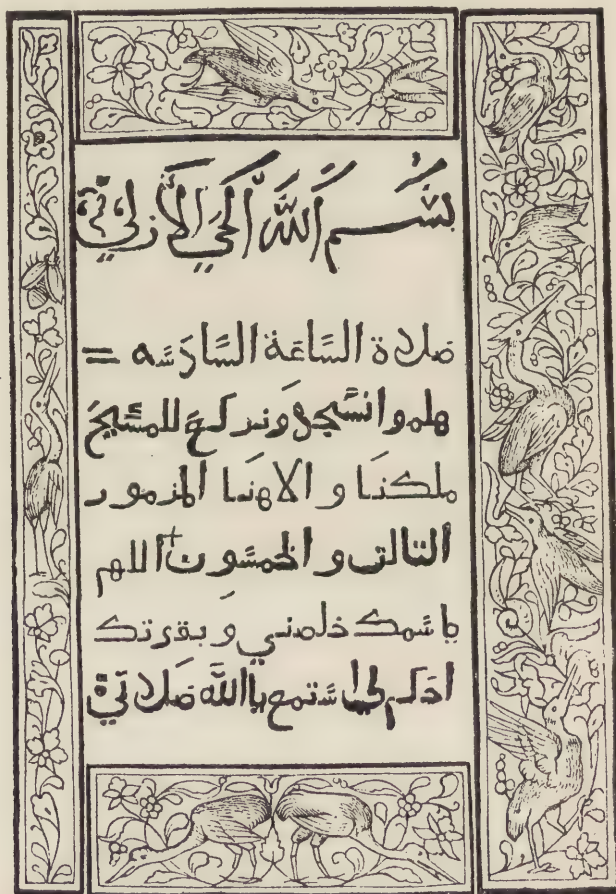 بسم الله الحي الازلي
صلاة الساعة السادسه =
هلموا نسجد ونركع للمسيح
ملكنا والاهنا المزمور
التالت والخمسون + اللهم
باسمك خلصني وبقوتك
احكم لي استمع يا الله صلاتي